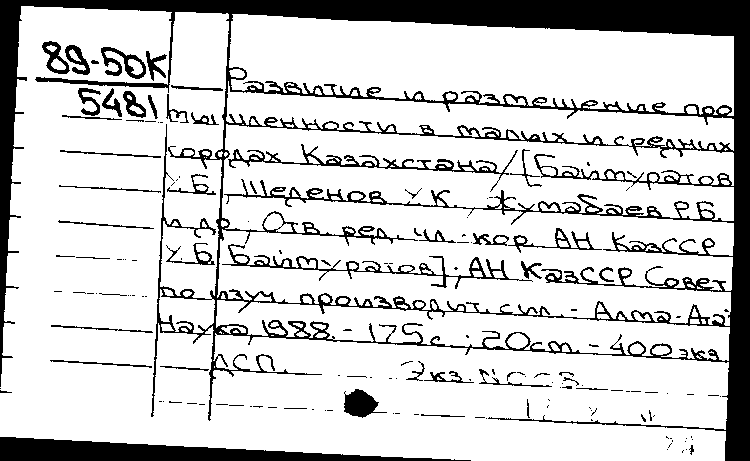 89-50К
5481
Развитие и размещение про
мышленности в малых и средних
городах Казахстана/[Баймуратов
У.Б., Шеденов У.К., Жумабаев Р.Б.
и др.; Отв. ред. чл.-кор. АН КазССР
У.Б. Баймуратов]; АН КазССР Совет
по изуч. производит. сил. - Алма-Ата:
Наука, 1988. - 175 с.; 20 cm. - 400 экз.
ДСП. Экз. N